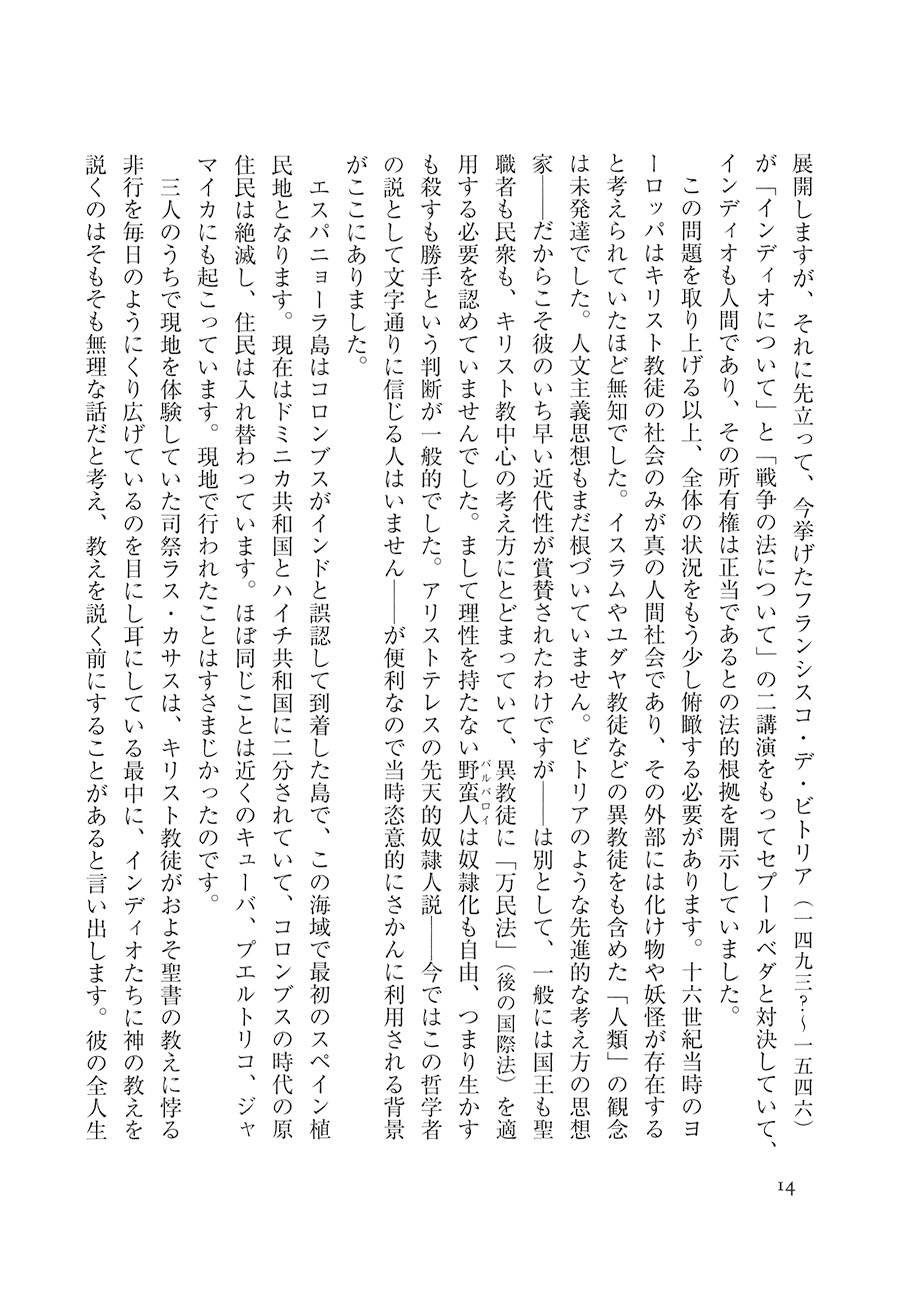 展開しますが、それに先立って、今挙げたフランシスコ・デ・ビトリア（一四九三?〜一五四六）
が「インディオについて」と「戦争の法について」の二講演をもってセプールベダと対決していて、
インディオも人間であり、その所有権は正当であるとの法的根拠を開示していました。
　この問題を取り上げる以上、全体の状況をもう少し俯瞰する必要があります。十六世紀当時のヨ
ーロッパはキリスト教徒の社会のみが真の人間社会であり、その外部には化け物や妖怪が存在する
と考えられていたほど無知でした。イスラムやユダヤ教徒などの異教徒をも含めた「人類」の観念
は未発達でした。人文主義思想もまだ根づいていません。ビトリアのような先進的な考え方の思想
家――だからこそ彼のいち早い近代性が賞賛されたわけですが――は別として、一般には国王も聖
職者も民衆も、キリスト教中心の考え方にとどまっていて、異教徒に「万民法」（後の国際法）を適
用する必要を認めていませんでした。まして理性を持たない野蛮人は奴隷化も自由、つまり生かす
バルバロイ
も殺すも勝手という判断が一般的でした。アリストテレスの先天的奴隷人説――今ではこの哲学者
の説として文字通りに信じる人はいません――が便利なので当時恣意的にさかんに利用される背景
がここにありました。
　エスパニョーラ島はコロンブスがインドと誤認して到着した島で、この海域で最初のスペイン植
民地となります。現在はドミニカ共和国とハイチ共和国に二分されていて、コロンブスの時代の原
住民は絶滅し、住民は入れ替わっています。ほぼ同じことは近くのキューバ、プエルトリコ、ジャ
マイカにも起こっています。現地で行われたことはすさまじかったのです。
　三人のうちで現地を体験していた司祭ラス・カサスは、キリスト教徒がおよそ聖書の教えに悖る
非行を毎日のようにくり広げているのを目にし耳にしている最中に、インディオたちに神の教えを
説くのはそもそも無理な話だと考え、教えを説く前にすることがあると言い出します。彼の全人生
14